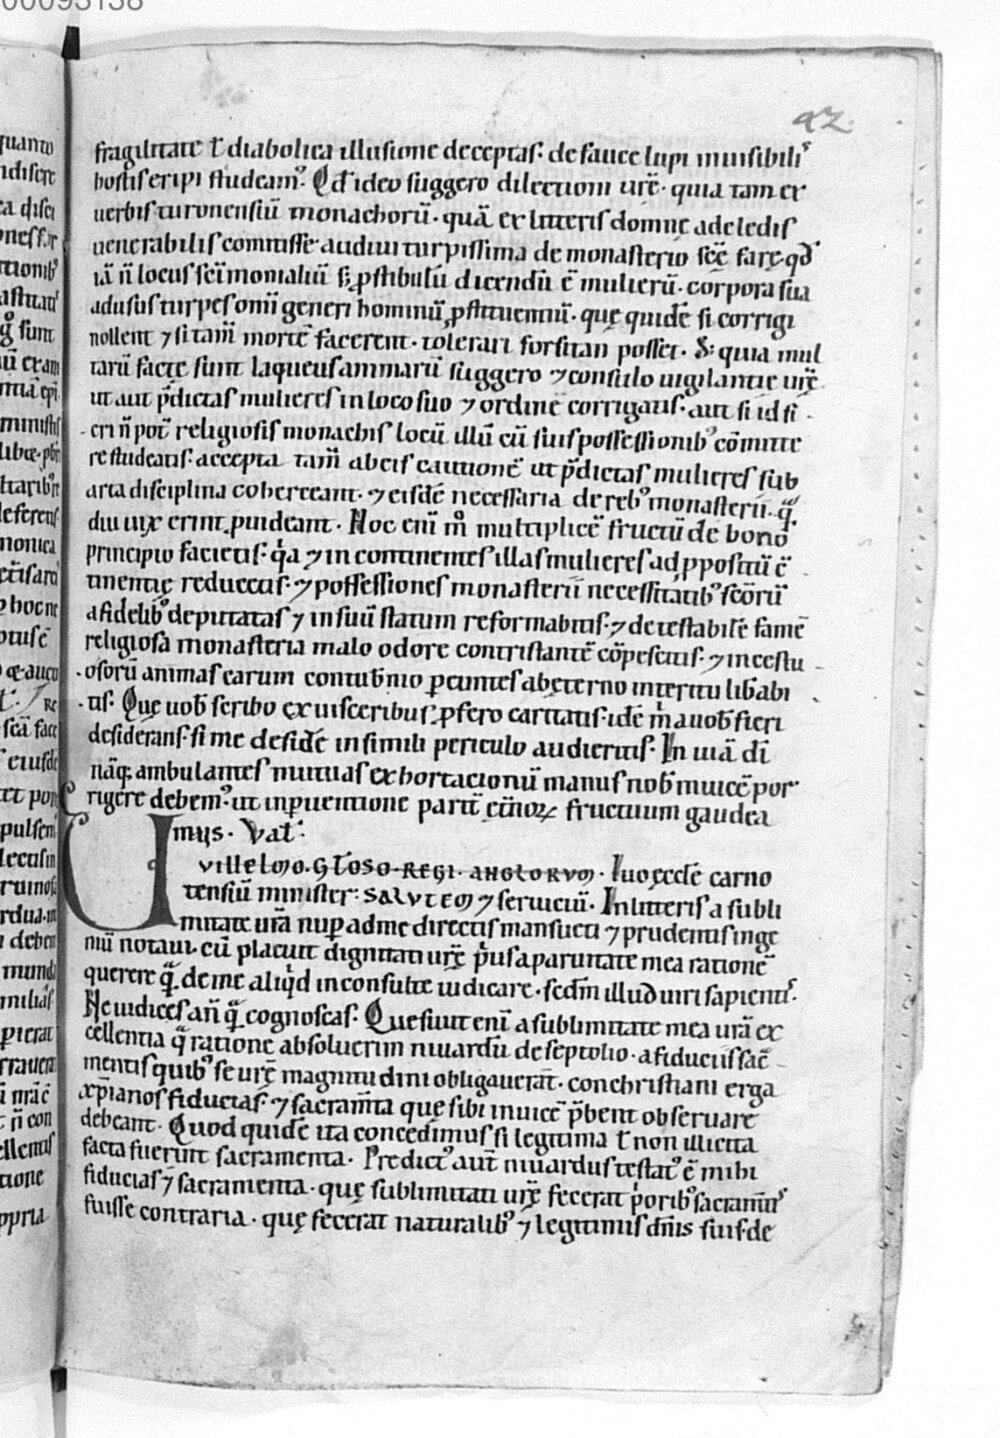 00093138
42
fragilitate ł diabolica illusione deceptas· de fauce lupi inuisibiliˢ
hostis eripi studeam᷒. Qd́ ideo suggero dilectioni urē· quia tam ex
uerbis turonensiū monachorū· quā ex litteris domnę adeledis
uenerabilis comitissę audiui turpissima de monasterio scē farę· qđ
iā ñ locus scīmonialiū sʒ ꝓstibulū dicendū ē mulierū· corpora sua
ad usus turpes omī generi hominū ꝓstituentiū· que quidē si corrigi
nollent ⁊ si tam̄ mortē facerent· tolerari forsitan posset· Sʒ quia mul
tarū factę sunt laqueus animarū suggero ⁊ consulo uigilantię urę̄
ut aut p̄dictas mulieres in loco suo ⁊ ordine corrigatis· aut si id fi
eri ñ pot̄ religiosis monachis locū illū cū suis possessionibꝰ cōmitte
re studeatis· accepta tam̄ ab eis cautionē ut p̄dictas mulieres sub
arta disciplina coherceant· ⁊ eisdē necessaria de rebꝰ monasterii· qᷓ
diu uix̄erint ꝓuideant· Hoc enī m̊ multiplicē fructū de bono
principio facietis· qᷓa ⁊ incontinentes illas mulieres ad ꝓpositū c̄
tinentię reducetis· ⁊ possessiones monasterii necessitatibꝰ scōrū
a fidelibꝰ deputatas ⁊ in suū statum reformabitis· ⁊ detestabilē famē
religiosa monasteria malo odore contristantē cōpescetis· ⁊ incestu
osorū animas earum contub̄nio ꝑeuntes ab ęterno interitu lib̄abi
tis. Quę uob̄ scribo ex uisceribus ꝓfero caritatis· idē m̓ a uob̄ fieri
desiderans· si me desidē in simili periculo audieritis· In uiā dī
nāqꝫ ambulantes mutuas exhortacionū manus nob̄ inuicē por
rigere debem᷒· ut in ꝑuentione partī c̄tinoꝝ fructuum gaudea
mus· Val̄·
VVillelmo· gl̄oso· regi· anglorvm· Iuo ęcclē carno
tensiū minister· salvtem ⁊ seruiciū. In litteris a subli
mitate urā nuꝑ ad me directis mansueti ⁊ prudentis inge
niū notaui· cū placuit dignitati urę̄ p̓us a paruitate mea rationē
querere qᷓ de me aliqͥd inconsulte iudicare· scđm illud uiri sapientiˢ·
Ne iudices añ qᷓ cognoscas· Quesiuit enī a sublimitate mea urā ex
cellentia qᷓ ratione absoluerim niuardū de septolio· a fiduciis sac̄
mentis quibꝰ se urę̄ magnitudini obligauerat̄· con christiani erga
xp̄ianos fiducias· ⁊ sacram̄ta que sibi inuicē p̄bent obseruare
debeant· Quod quidē ita concedimus si legitima ł non illicita
facta fuerint sacramenta· Predict᷒ aut̄ niuardus testat᷒ ē mihi
fiducias ⁊ sacramenta· quę sublimitati urę̄ fecerat p̓oribꝰ sacram̄tiˢ
fuisse contraria· quę fecerat naturalibꝰ ⁊ legitimis dn̄is suis· de